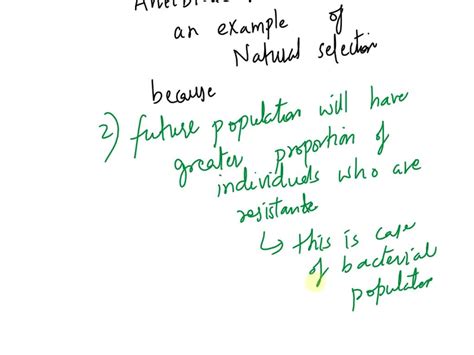 an example of
Natural selection
because
2) future population will have
greater proportion of
individuals who are
resistante
↳ this is case
of bacterial
population